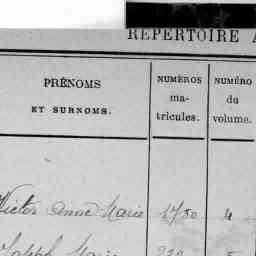 RÉPERTOIRE A
PRÉNOMS
ET SURNOMS.
NUMÉROS
ma-
tricules.
NUMÉRO
du
volume.
Victor Anne Marie 1780 4
Joseph Marie